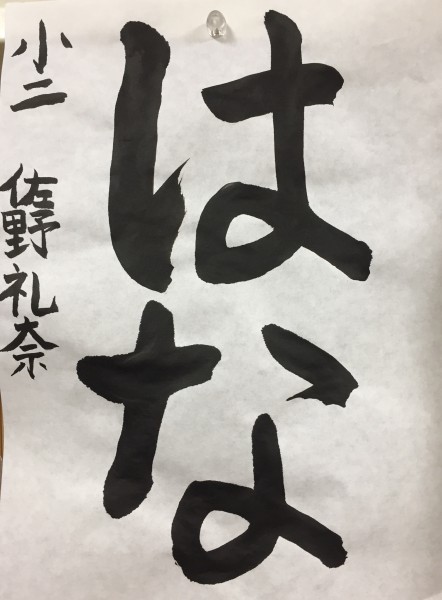 はな
小二 佐野礼奈